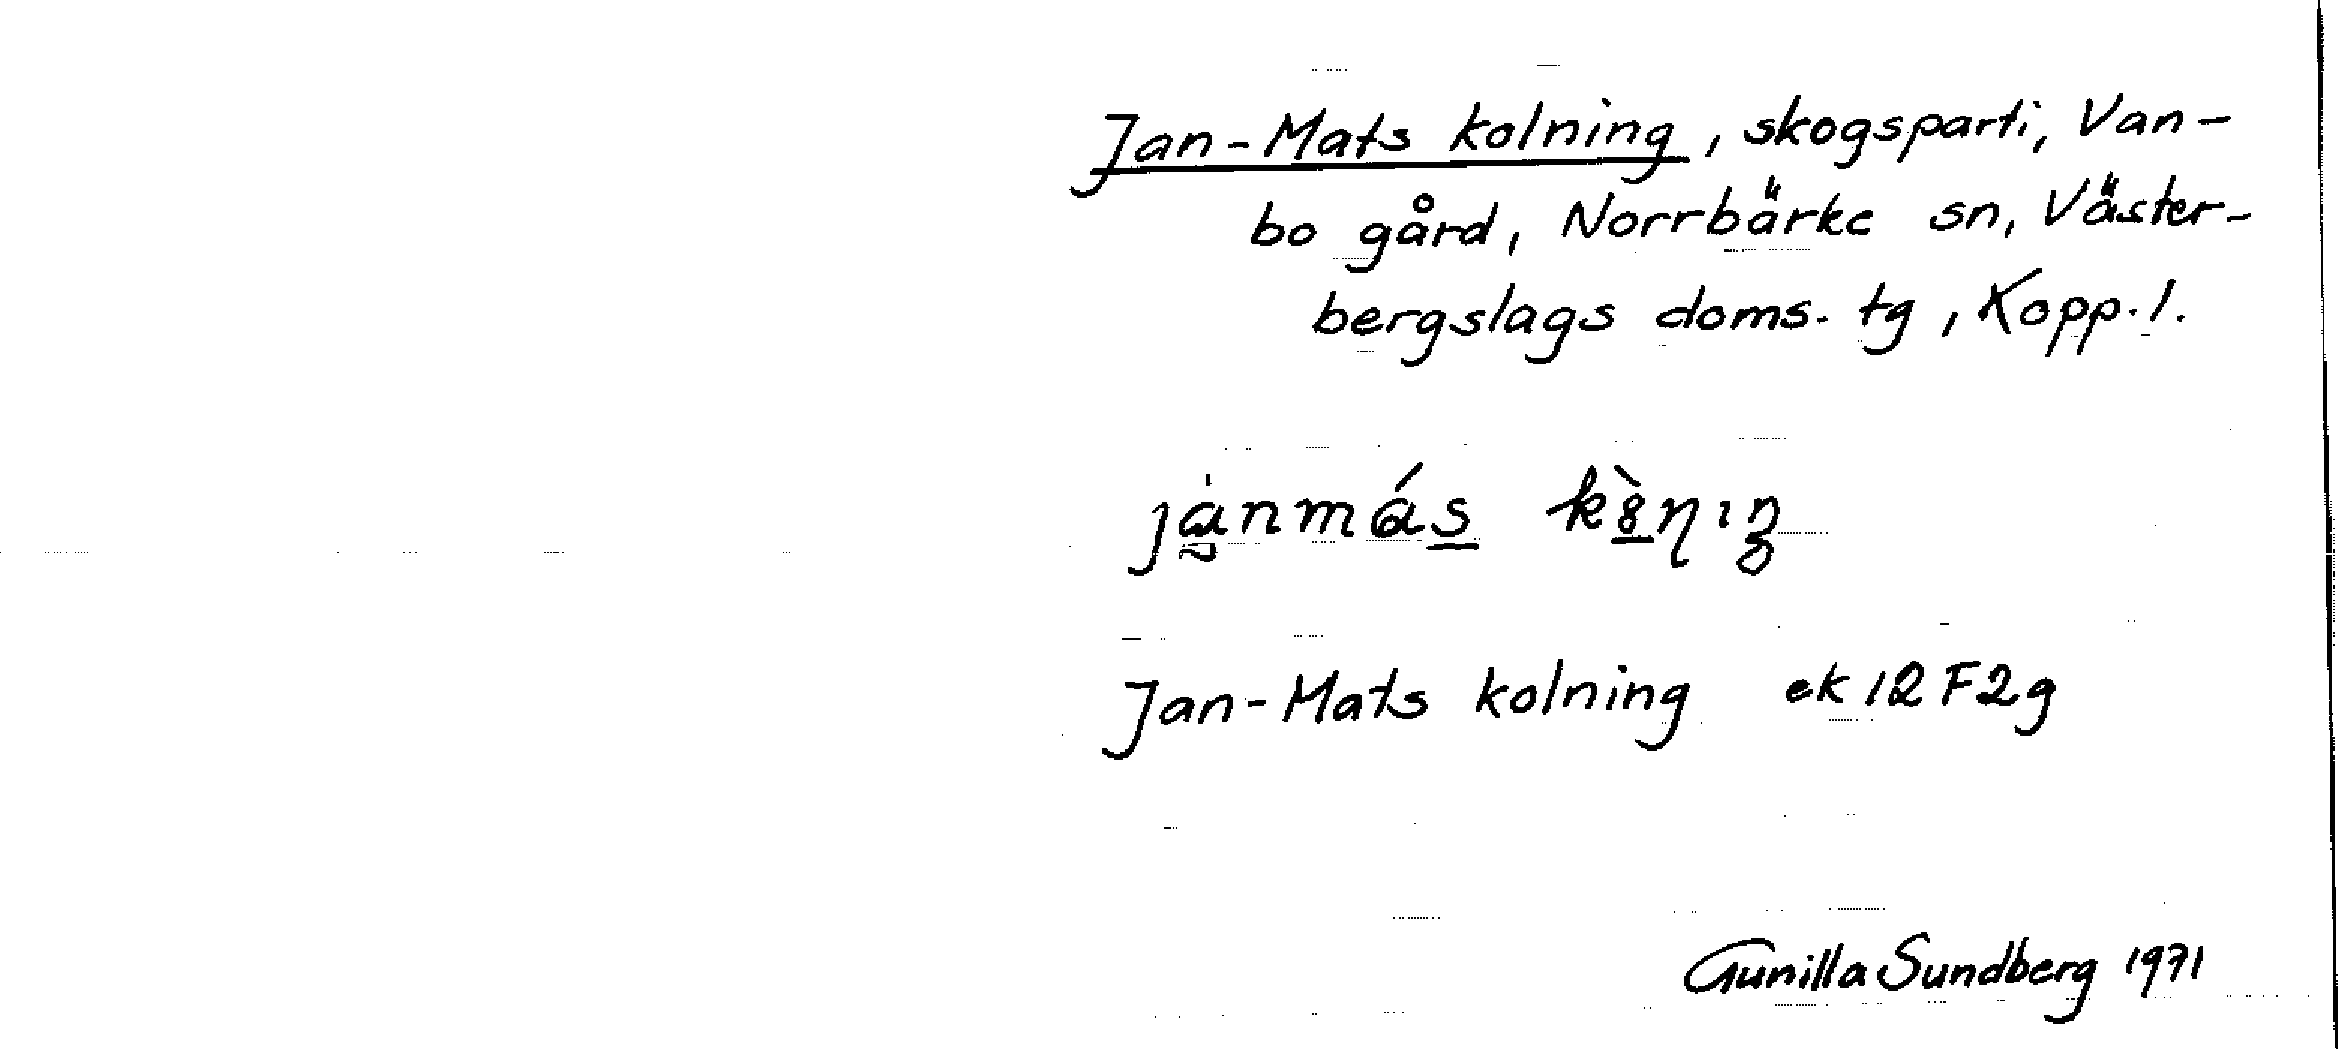 Jan-Mats kolning, skogsparti, Van-
bo gård, Norrbärke sn, Väster-
bergslags doms. tg, Kopp. l.
Jan-Mats kolning ek 12F2g
Gunilla Sundberg 1971